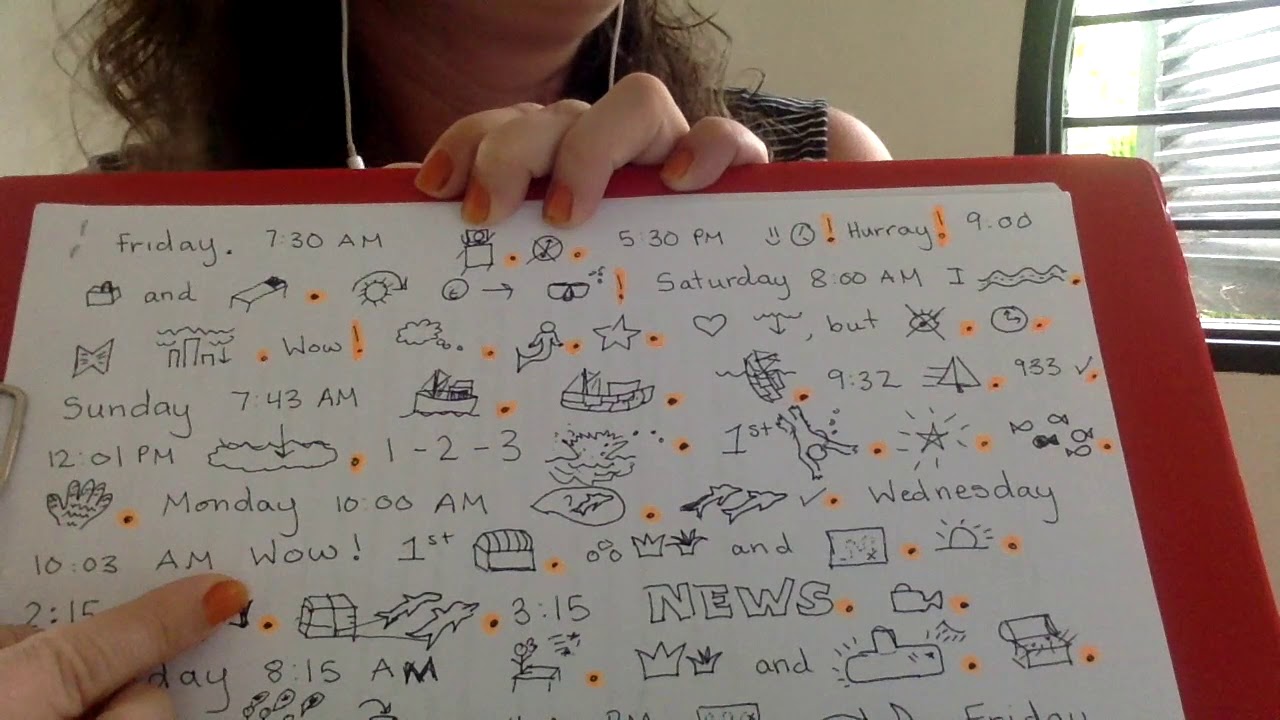 Friday. 7:30 AM . . 5:30 PM ! Hurray! 9.00
and . ! Saturday 8:00 AM I .
. Wow! . . . , but . .
Sunday 7:43 AM . . . 9:32 . 933 ✓.
12:01 PM . 1-2-3 . 1st . . .
. Monday 10:00 AM . ✓. Wednesday
10:03 AM Wow! 1st . and . .
2:15 . . 3:15 NEWS. .
day 8:15 AM . and . .
Friday